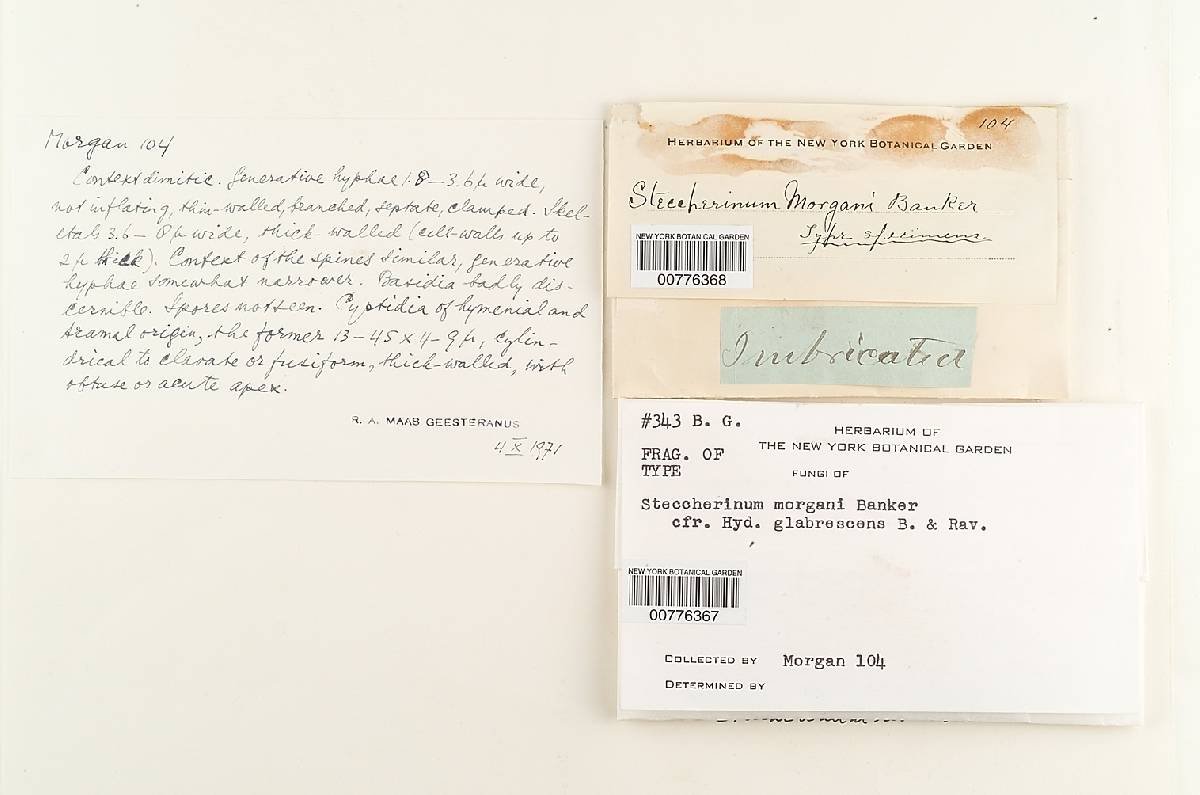 Morgan 104
Context dimitic. Generative hyphae 1.8–3.6 µ wide,
not inflating, thin-walled, branched, septate, clamped. Skel-
etals 3.6–8 µ wide, thick walled (cell-walls up to
2 µ thick). Context of the spines similar, generative
hyphae somewhat narrower. Basidia badly dis-
cernible. Spores not seen. Cystidia of hymenial and
tramal origin, the former 13–45 x 4–9 µ, cylin-
drical to clavate or fusiform, thick-walled, with
obtuse or acute apex.
R. A. MAAS GEESTERANUS
4 X 1971
104
HERBARIUM OF THE NEW YORK BOTANICAL GARDEN
Steccherinum Morgani Banker
Type specimens.
NEW YORK BOTANICAL GARDEN
00776368
Imbricated
#343 B. G.
HERBARIUM OF
THE NEW YORK BOTANICAL GARDEN
FRAG. OF
TYPE
FUNGI OF
Steccherinum morgani Banker
cfr. Hyd. glabrescens B. & Rav.
NEW YORK BOTANICAL GARDEN
00776367
COLLECTED BY Morgan 104
DETERMINED BY